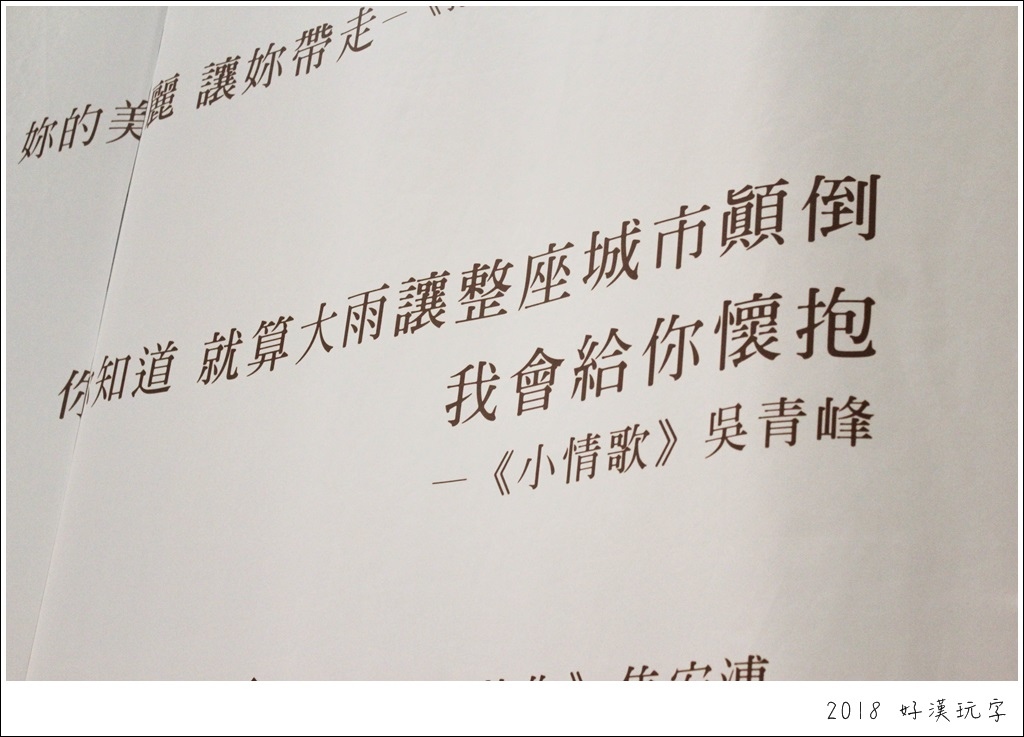 妳的美麗 讓妳帶走—《
你知道 就算大雨讓整座城市顛倒
我會給你懷抱
—《小情歌》吳青峰
》焦安溥
2018 好漢玩字